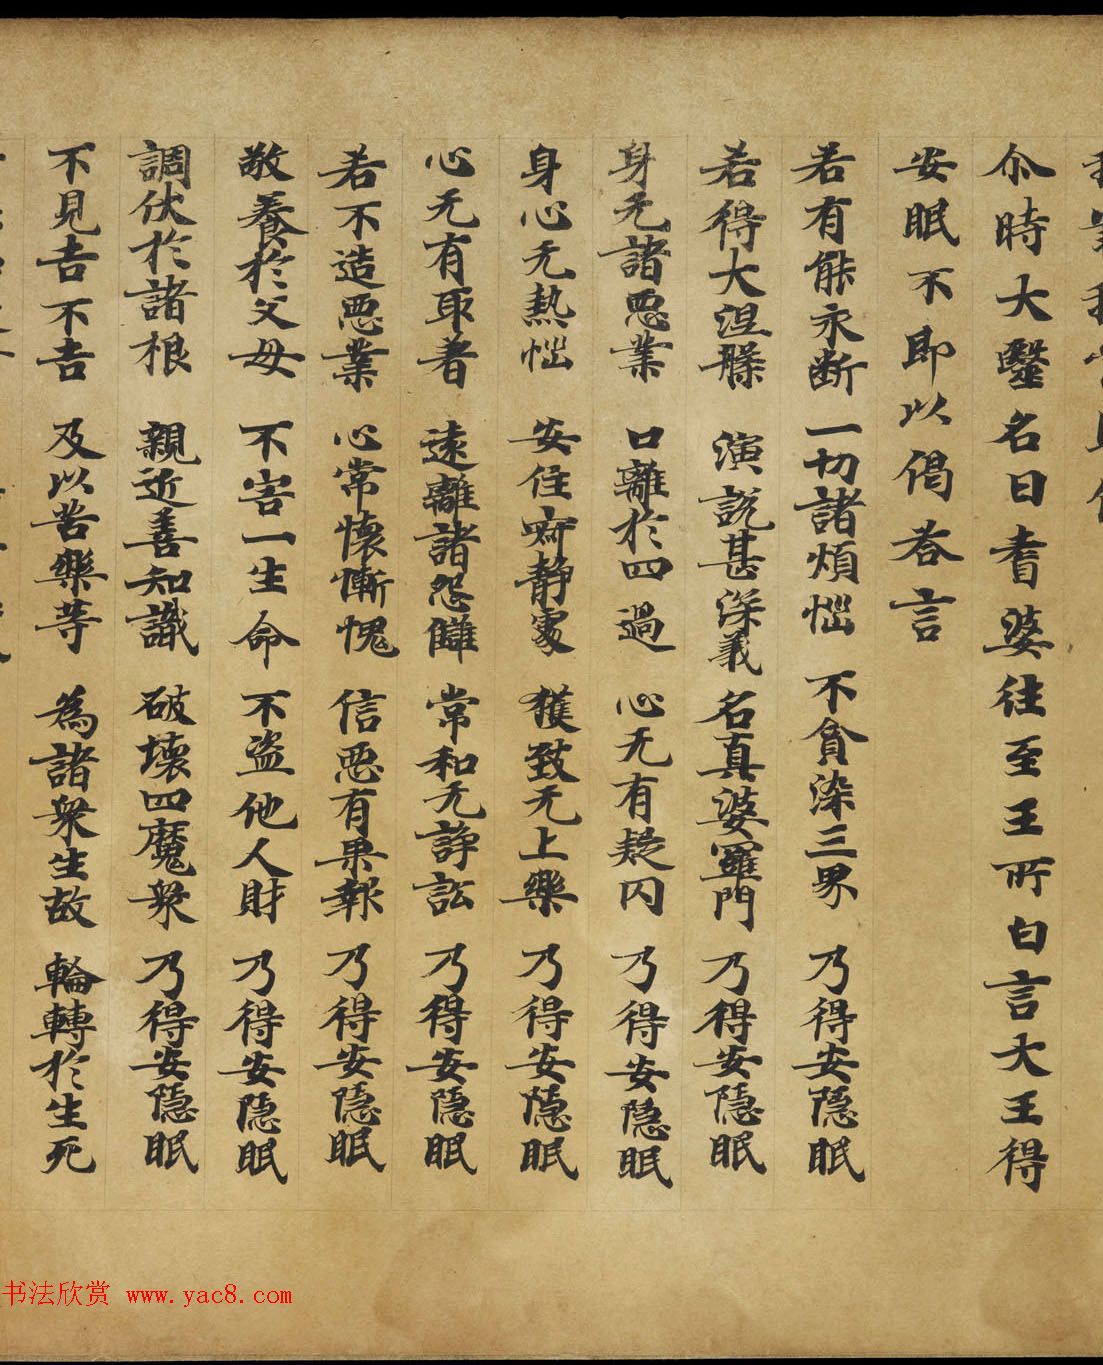 尒時大毉名曰耆婆往至王所白言大王得
安眠不即以偈荅言
若有能永断 一切諸煩惱 不貪染三界 乃得安隱眠
若得大涅槃 演説甚深義 名真婆羅門 乃得安隱眠
身无諸惡業 口離於四過 心无有疑冈 乃得安隱眠
身心无熱惱 安住㝛静處 獲致无上樂 乃得安隱眠
心无有取著 遠離諸怨讎 常和无諍訟 乃得安隱眠
若不造惡業 心常懷慚愧 信惡有果報 乃得安隱眠
敬養於父母 不害一生命 不盗他人財 乃得安隱眠
調伏於諸根 親近善知識 破壞四魔衆 乃得安隱眠
不見吉不吉 及以苦樂等 為諸衆生故 輪轉於生死
书法欣赏 www.yac8.com